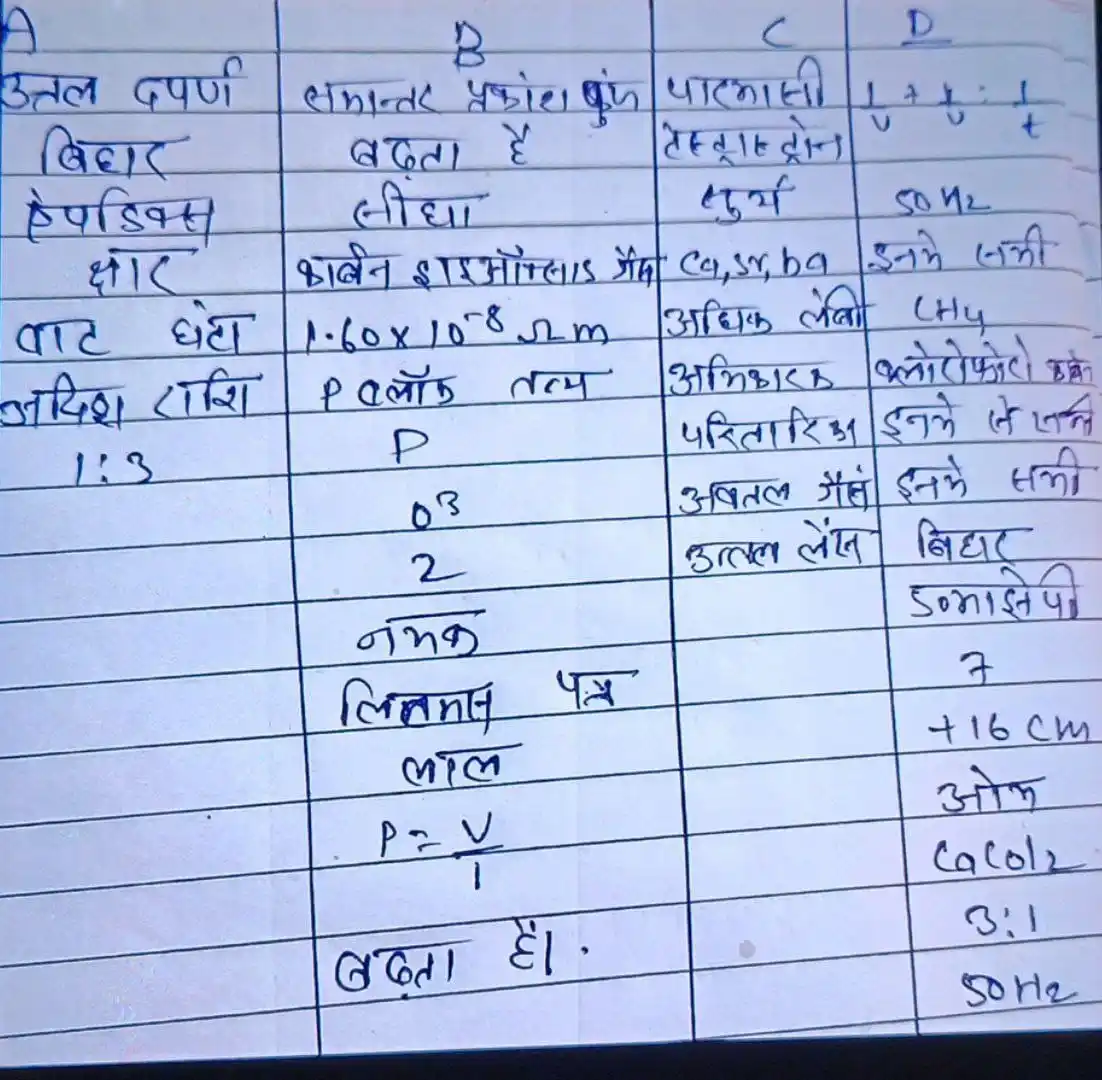 A B C D
उत्तल दपर्ण समान्तर प्रकांश पुंज पारभासी 1/v + 1/u = 1/f
बिहार बढ़ता है टेस्ट्रास्ट्रोन
ऐपडिक्स सीधा सुर्य 50 Hz
क्षार कार्बन डाइऑक्साड गैस Ca, Sr, ba इनमे सभी
वाट घंटा 1.60 x 10⁻⁸ Ωm अधिक लंबी CH4
अदिश राशि P ब्लॉक तत्व अभिकारक क्लोरोफ्लोरो
1:3 P परितारिका इनमे से सभी
O³ अवतल लेंस इनमे सभी
2 उत्तल लेंस बिहार
नमक
लिटमस पत्र 7
लाल +16 cm
P = V/I ओम
CaCol2
बढ़ता है। 3:1
50 Hz